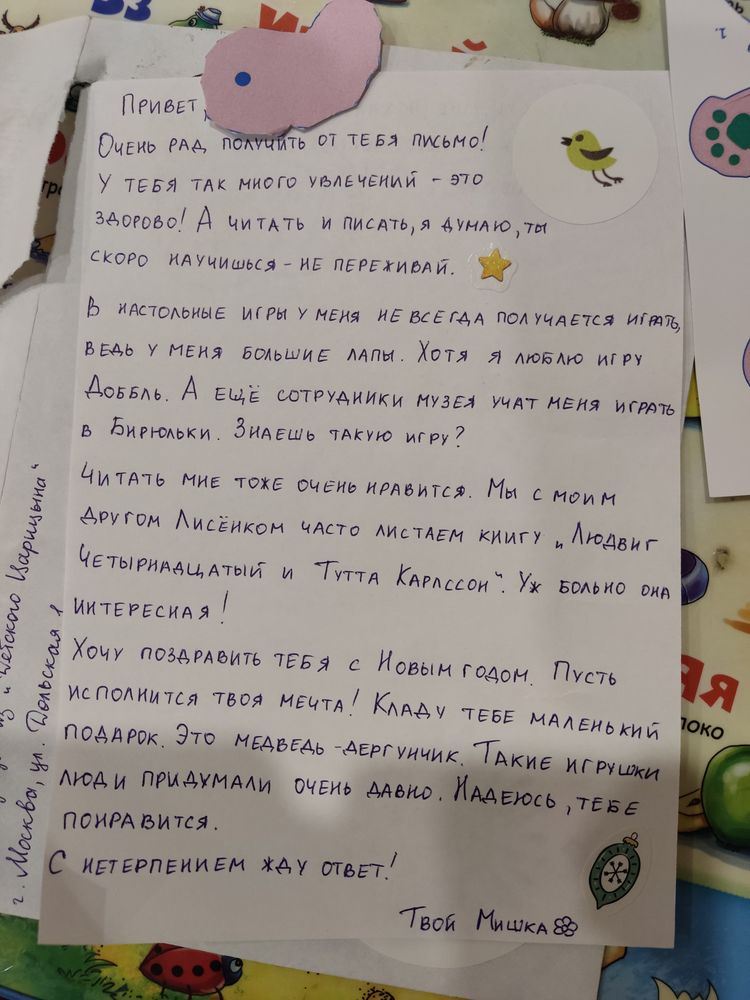 Привет,
Очень рад получить от тебя письмо!
У тебя так много увлечений - это
здорово! А читать и писать, я думаю, ты
скоро научишься - не переживай.
В настольные игры у меня не всегда получается играть,
ведь у меня большие лапы. Хотя я люблю игру
Доббль. А ещё сотрудники музея учат меня играть
в Бирюльки. Знаешь такую игру?
Читать мне тоже очень нравится. Мы с моим
другом Лисёнком часто листаем книгу „Людвиг
Четырнадцатый и Тутта Карлссон“. Уж больно она
интересная!
Хочу поздравить тебя с Новым годом. Пусть
исполнится твоя мечта! Кладу тебе маленький
подарок. Это медведь-дергунчик. Такие игрушки
люди придумали очень давно. Надеюсь, тебе
понравится.
С нетерпением жду ответ!
Твой Мишка
Детского Царицына“
г. Москва, ул. Дольская 1
ая
локо
1.